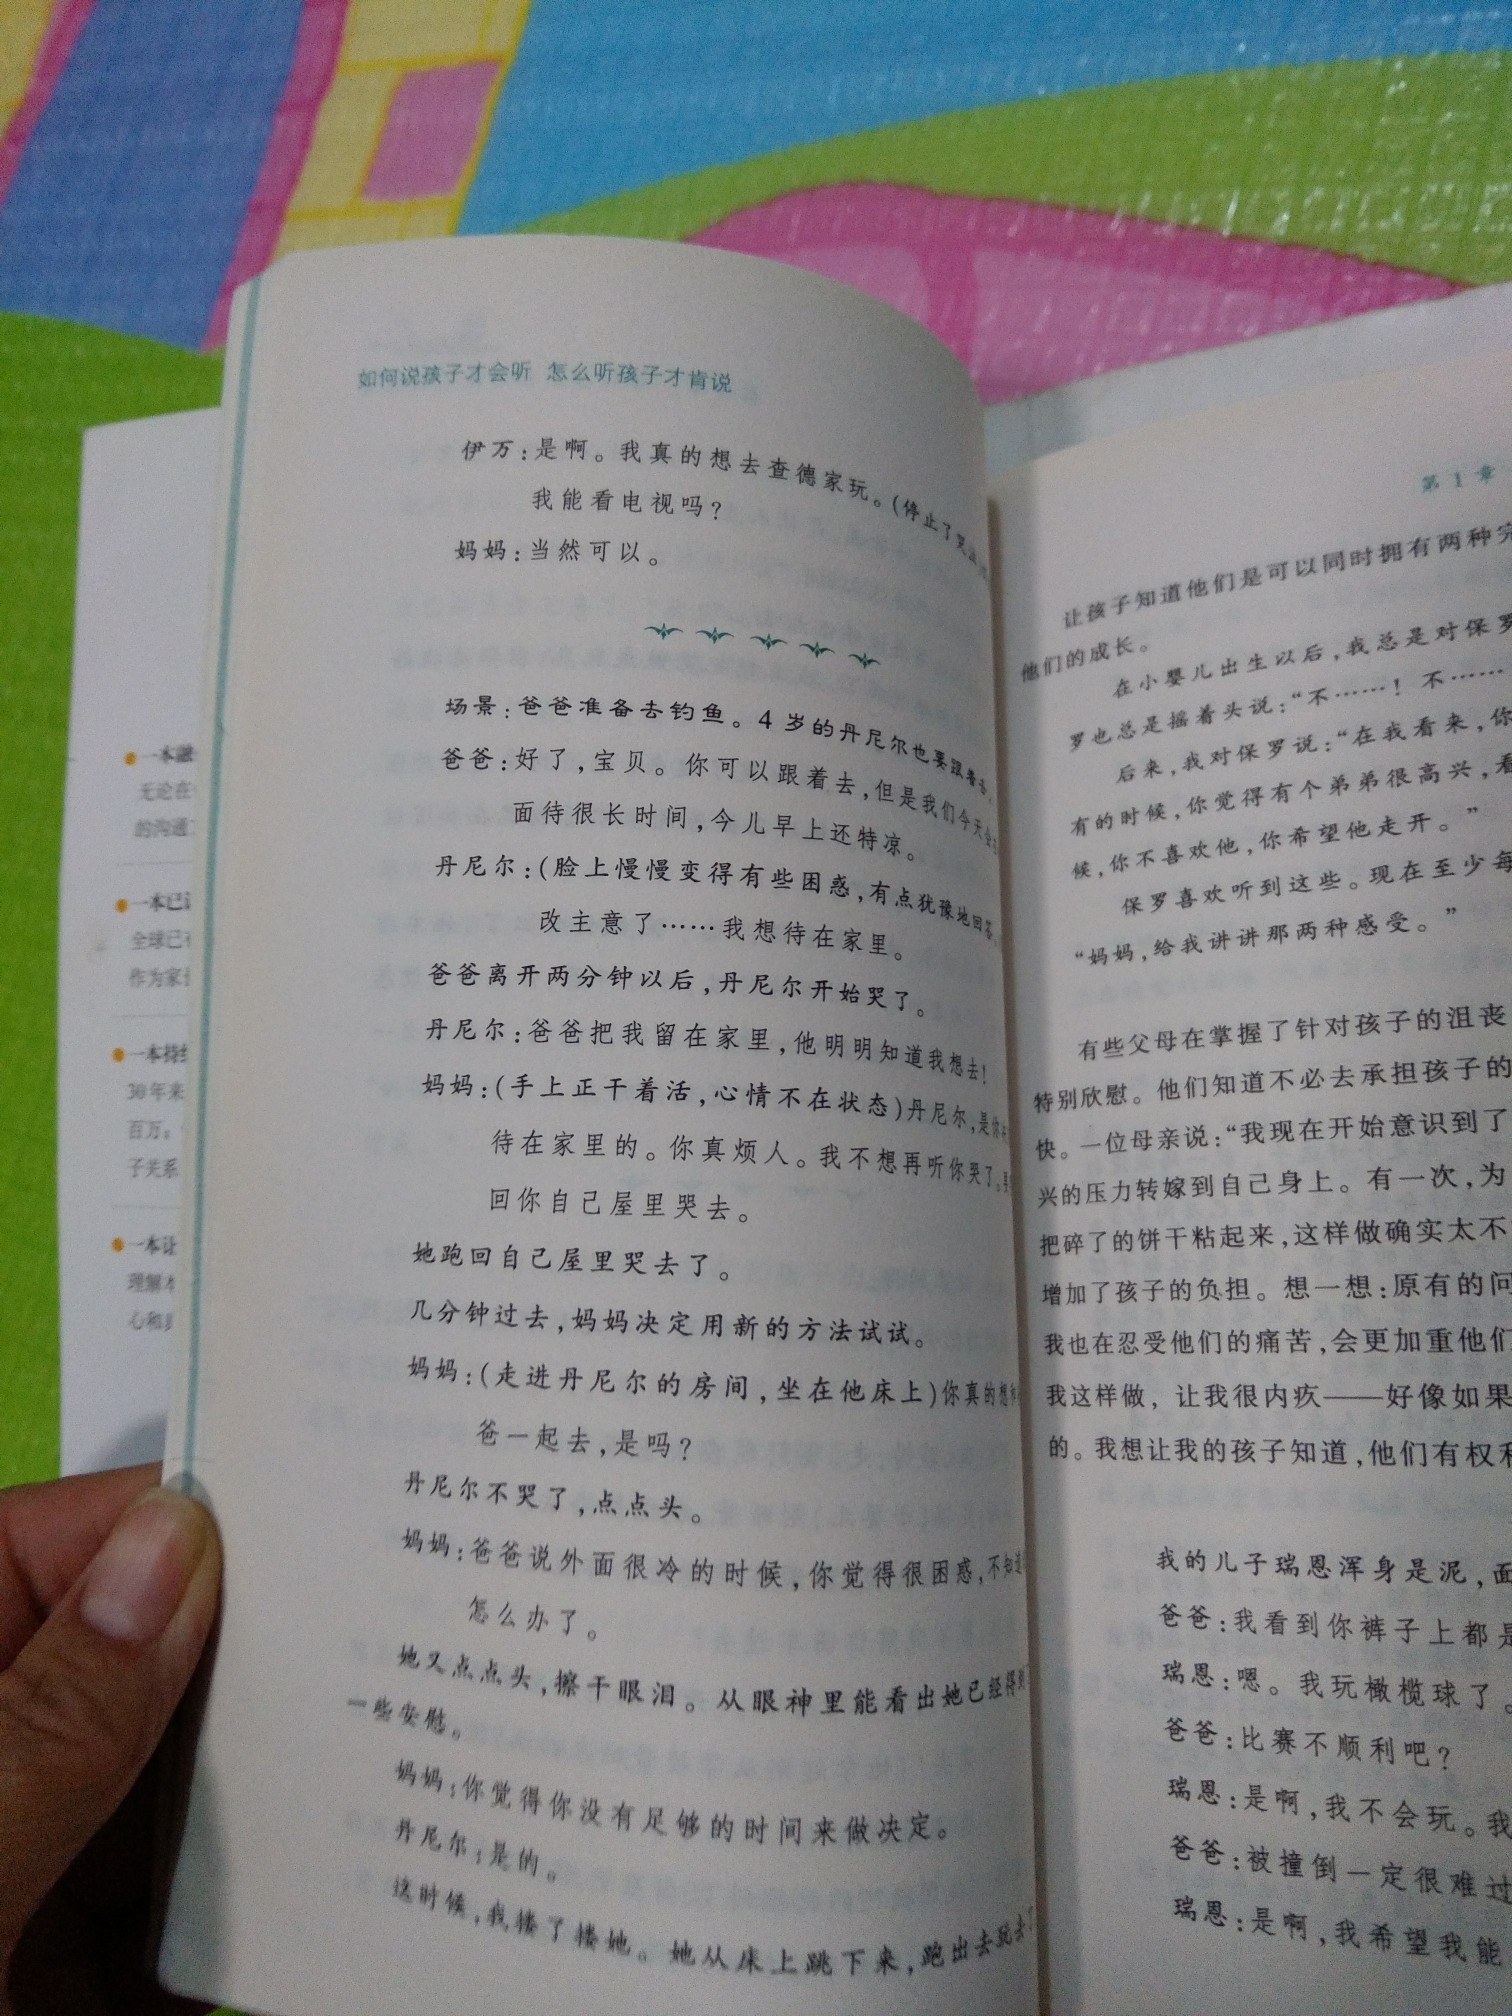 如何说孩子才会听 怎么听孩子才肯说
伊万:是啊。我真的想去查德家玩。(停止了哭泣
我能看电视吗?
妈妈:当然可以。
场景:爸爸准备去钓鱼。4岁的丹尼尔也要跟着去。
爸爸:好了,宝贝。你可以跟着去,但是我们今天会
面待很长时间,今儿早上还特凉。
丹尼尔:(脸上慢慢变得有些困惑,有点犹豫地回答
改主意了……我想待在家里。
爸爸离开两分钟以后,丹尼尔开始哭了。
丹尼尔:爸爸把我留在家里,他明明知道我想去!
妈妈:(手上正干着活,心情不在状态)丹尼尔,是你
待在家里的。你真烦人。我不想再听你哭了。
回你自己屋里哭去。
她跑回自己屋里哭去了。
几分钟过去,妈妈决定用新的方法试试。
妈妈:(走进丹尼尔的房间,坐在他床上)你真的想和
爸一起去,是吗?
丹尼尔不哭了,点点头。
妈妈:爸爸说外面很冷的时候,你觉得很困惑,不知道
怎么办了。
她又点点头,擦干眼泪。从眼神里能看出她已经得到
一些安慰。
妈妈:你觉得你没有足够的时间来做决定。
丹尼尔:是的。
这时候,我搂了搂她。她从床上跳下来,跑出去玩去了
第1章
让孩子知道他们是可以同时拥有两种完
他们的成长。
在小婴儿出生以后,我总是对保罗
罗也总是摇着头说:“不……!不……
后来,我对保罗说:“在我看来,你
有的时候,你觉得有个弟弟很高兴,看
候,你不喜欢他,你希望他走开。”
保罗喜欢听到这些。现在至少每
“妈妈,给我讲讲那两种感受。”
有些父母在掌握了针对孩子的沮丧
特别欣慰。他们知道不必去承担孩子的
快。一位母亲说:“我现在开始意识到了
兴的压力转嫁到自己身上。有一次,为
把碎了的饼干粘起来,这样做确实太不
增加了孩子的负担。想一想:原有的问
我也在忍受他们的痛苦,会更加重他们
我这样做,让我很内疚——好像如果
的。我想让我的孩子知道,他们有权利
我的儿子瑞恩浑身是泥,面
爸爸:我看到你裤子上都是
瑞恩:嗯。我玩橄榄球了。
爸爸:比赛不顺利吧?
瑞恩:是啊,我不会玩。我
爸爸:被撞倒一定很难过
瑞恩:是啊,我希望我能
一本融
无论在
的沟通
一本已
全球已
作为家长
一本待
30年来
百万
子关系
一本让
理解
心和